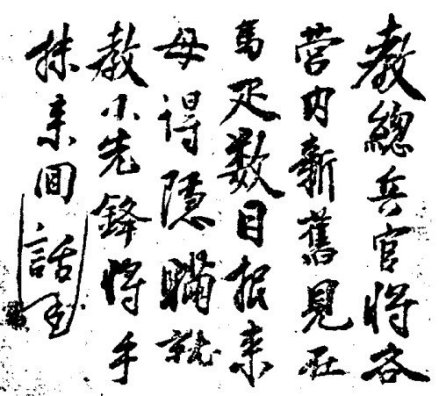 教總兵官將各
营内新舊見在
馬疋数目报来
毋得隐瞞就
教小先鋒将手
抹来回話